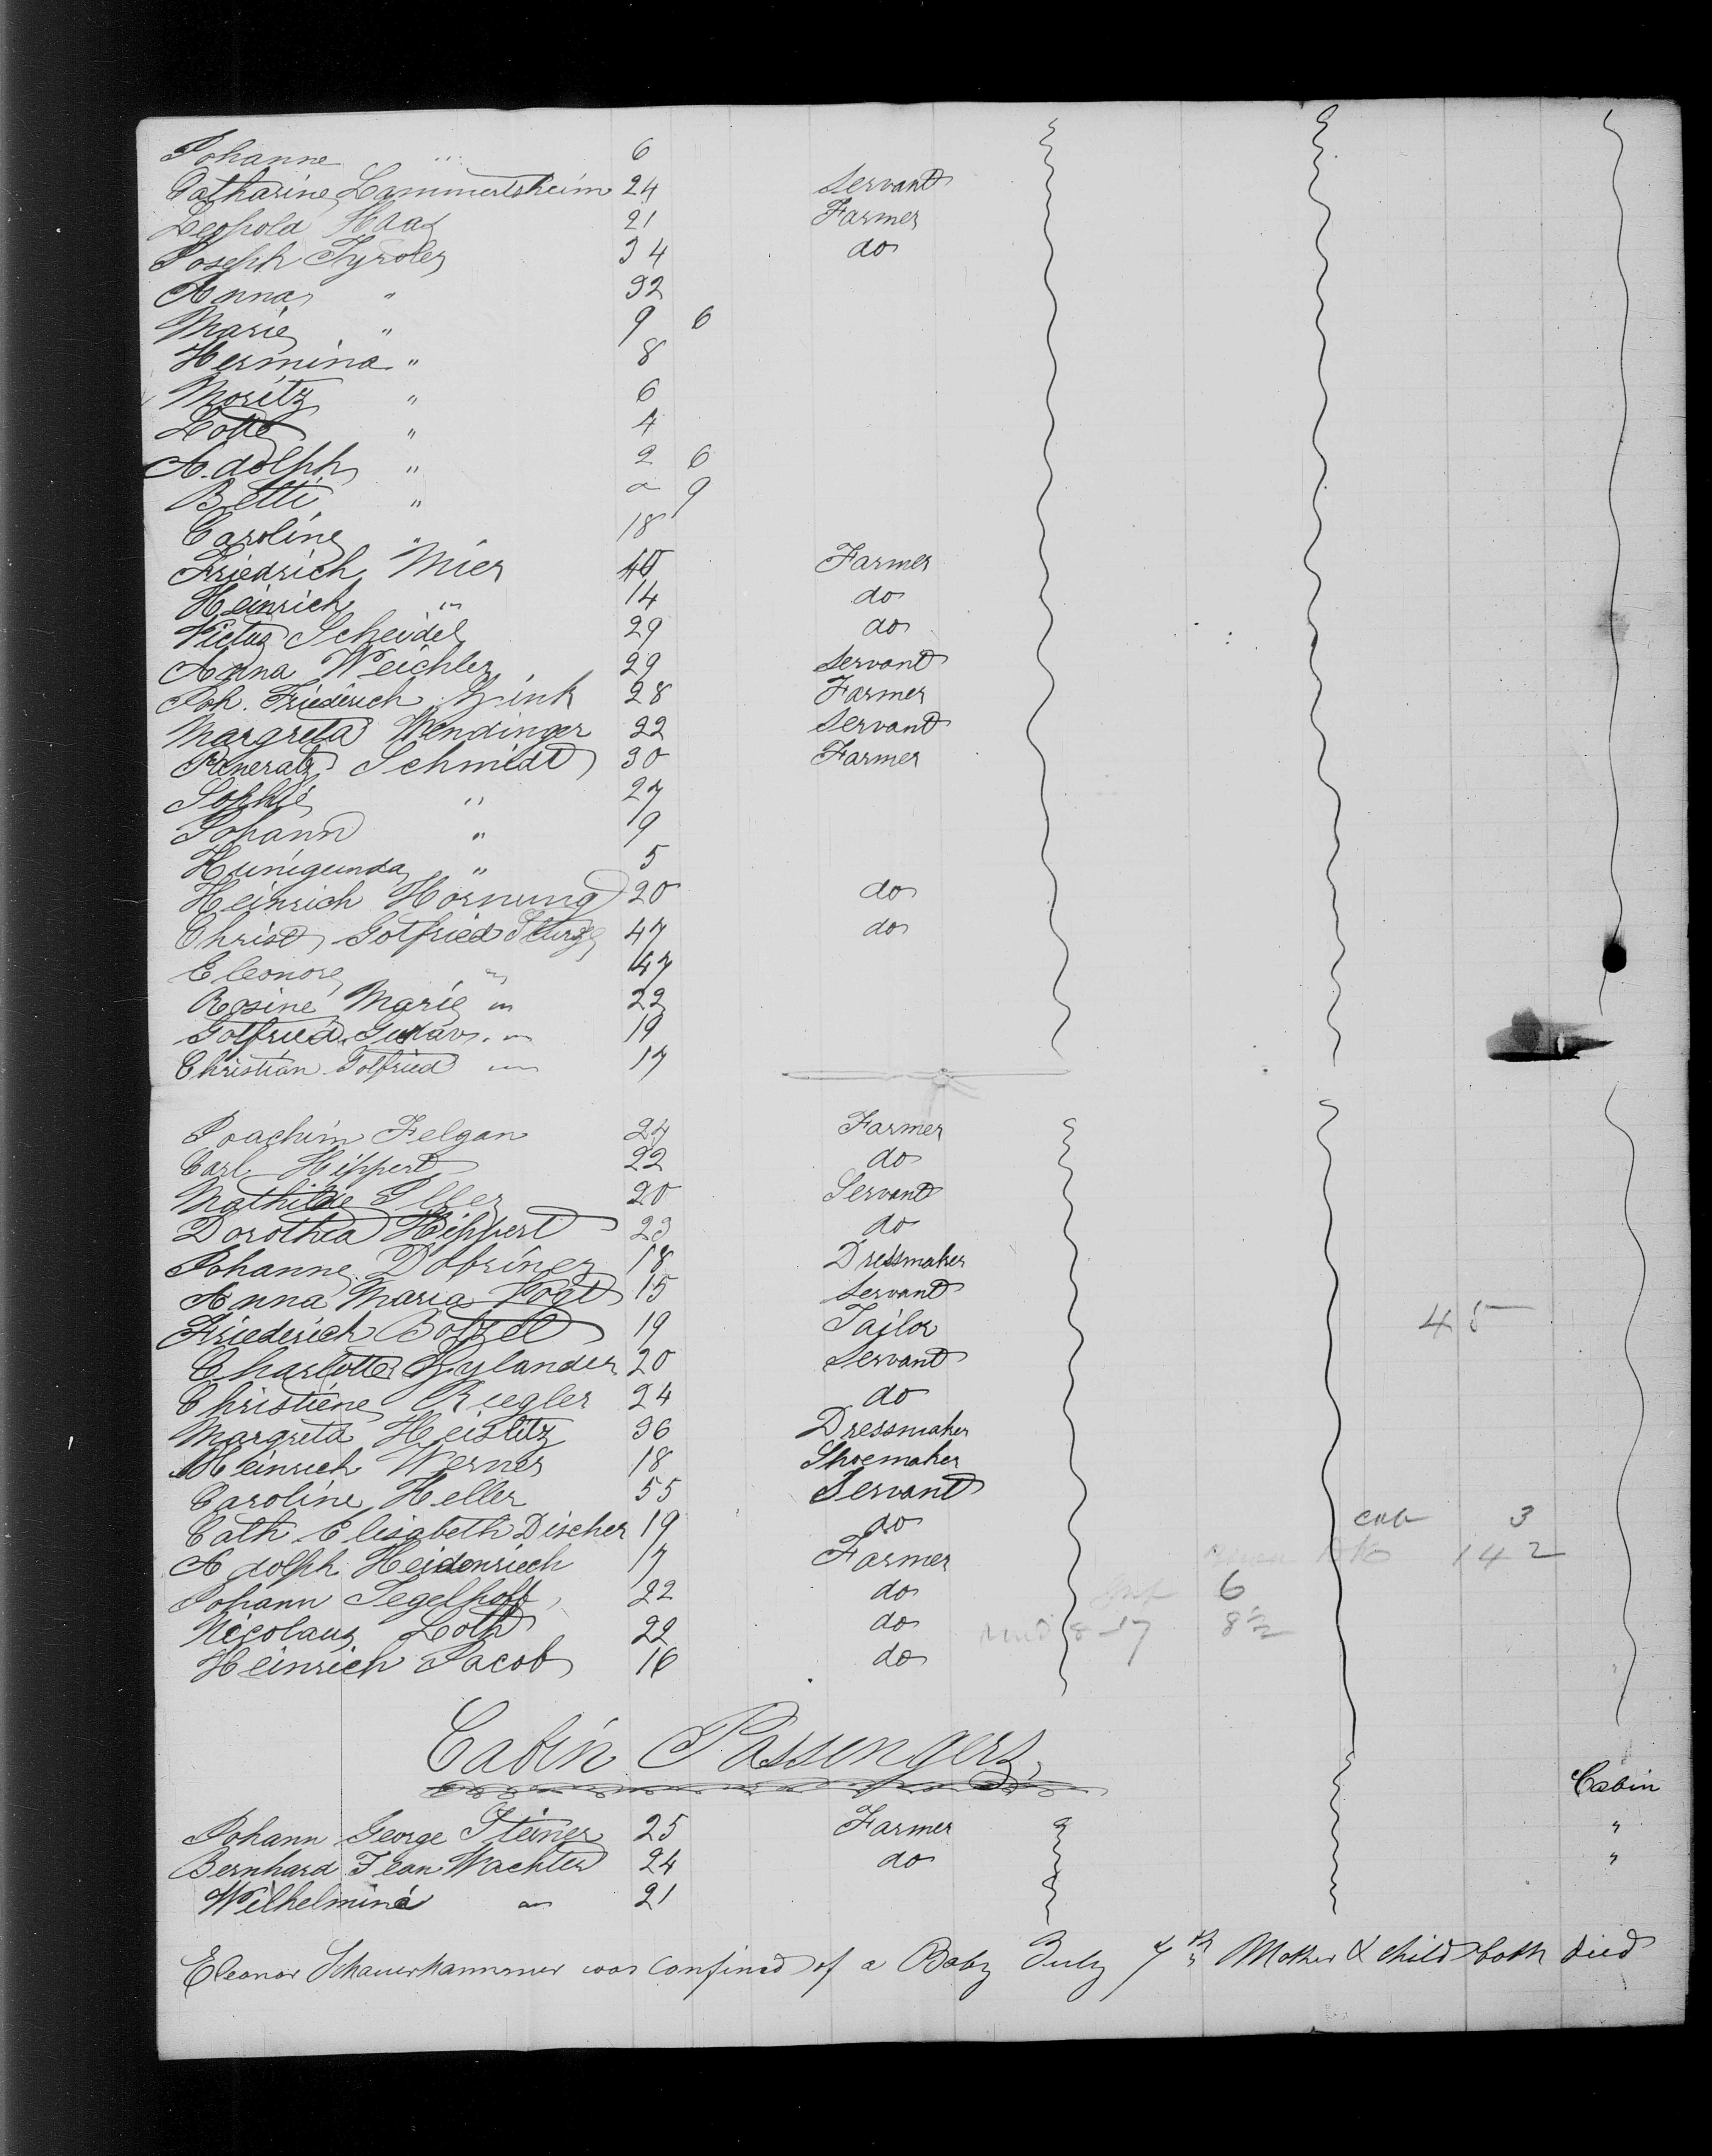 Johanne " 6
Catharine Lammertsheim 24 Servant
Leopold Haas 21 Farmer
Joseph Tyroler 34 do
Anna " 32
Marie " 9 6
Hermina " 8
Moritz " 6
Lotte " 4
Adolph " 2 6
Betti " 9
Caroline " 18
Friedrich Mier Farmer
Heinrich " 14 do
Scheidel 29 do
Anna Weichler 29 Servant
Joh. Friederich Zink 28 Farmer
Margreta Wendinger 22 Servant
Schmidt 30 Farmer
Sophie " 27
Johann " 9
Kunigunda " 5
Heinrich Hornung 20 do
Christ. Gotfried 47 do
Eleonore " 47
Rosine Marie " 22
Gotfried Gustav. " 19
Christian Gotfried " 17
Joachim Felgan 24 Farmer
Carl Hippert 22 do
Mathilde 20 Servant
Dorothea Hippert 23 do
Johanne 18 Dressmaker
Anna Maria Vogt 15 Servant
Friederich 19 Tailor
45
Charlotte Zylander 20 Servant
Christiene Riegler 24 do
Margreta Heislitz 36 Dressmaker
Heinrich Werner 18 Shoemaker
Caroline Heller 55 Servant
Cath Elisabeth Discher 19 do 3
Adolph Heidenriech 17 Farmer 142
Johann Segelhoff 22 do 6
Nicolaus Loth 22 do
Heinrich Jacob 16 do
Cabin Passengers
Cabin
Johann George Steiner 25 Farmer "
Bernhard Jean Wachter 24 do "
Wilhelmine " 21
Eleonor Schauerhammer was confined of a Baby July 7th Mother & child both died